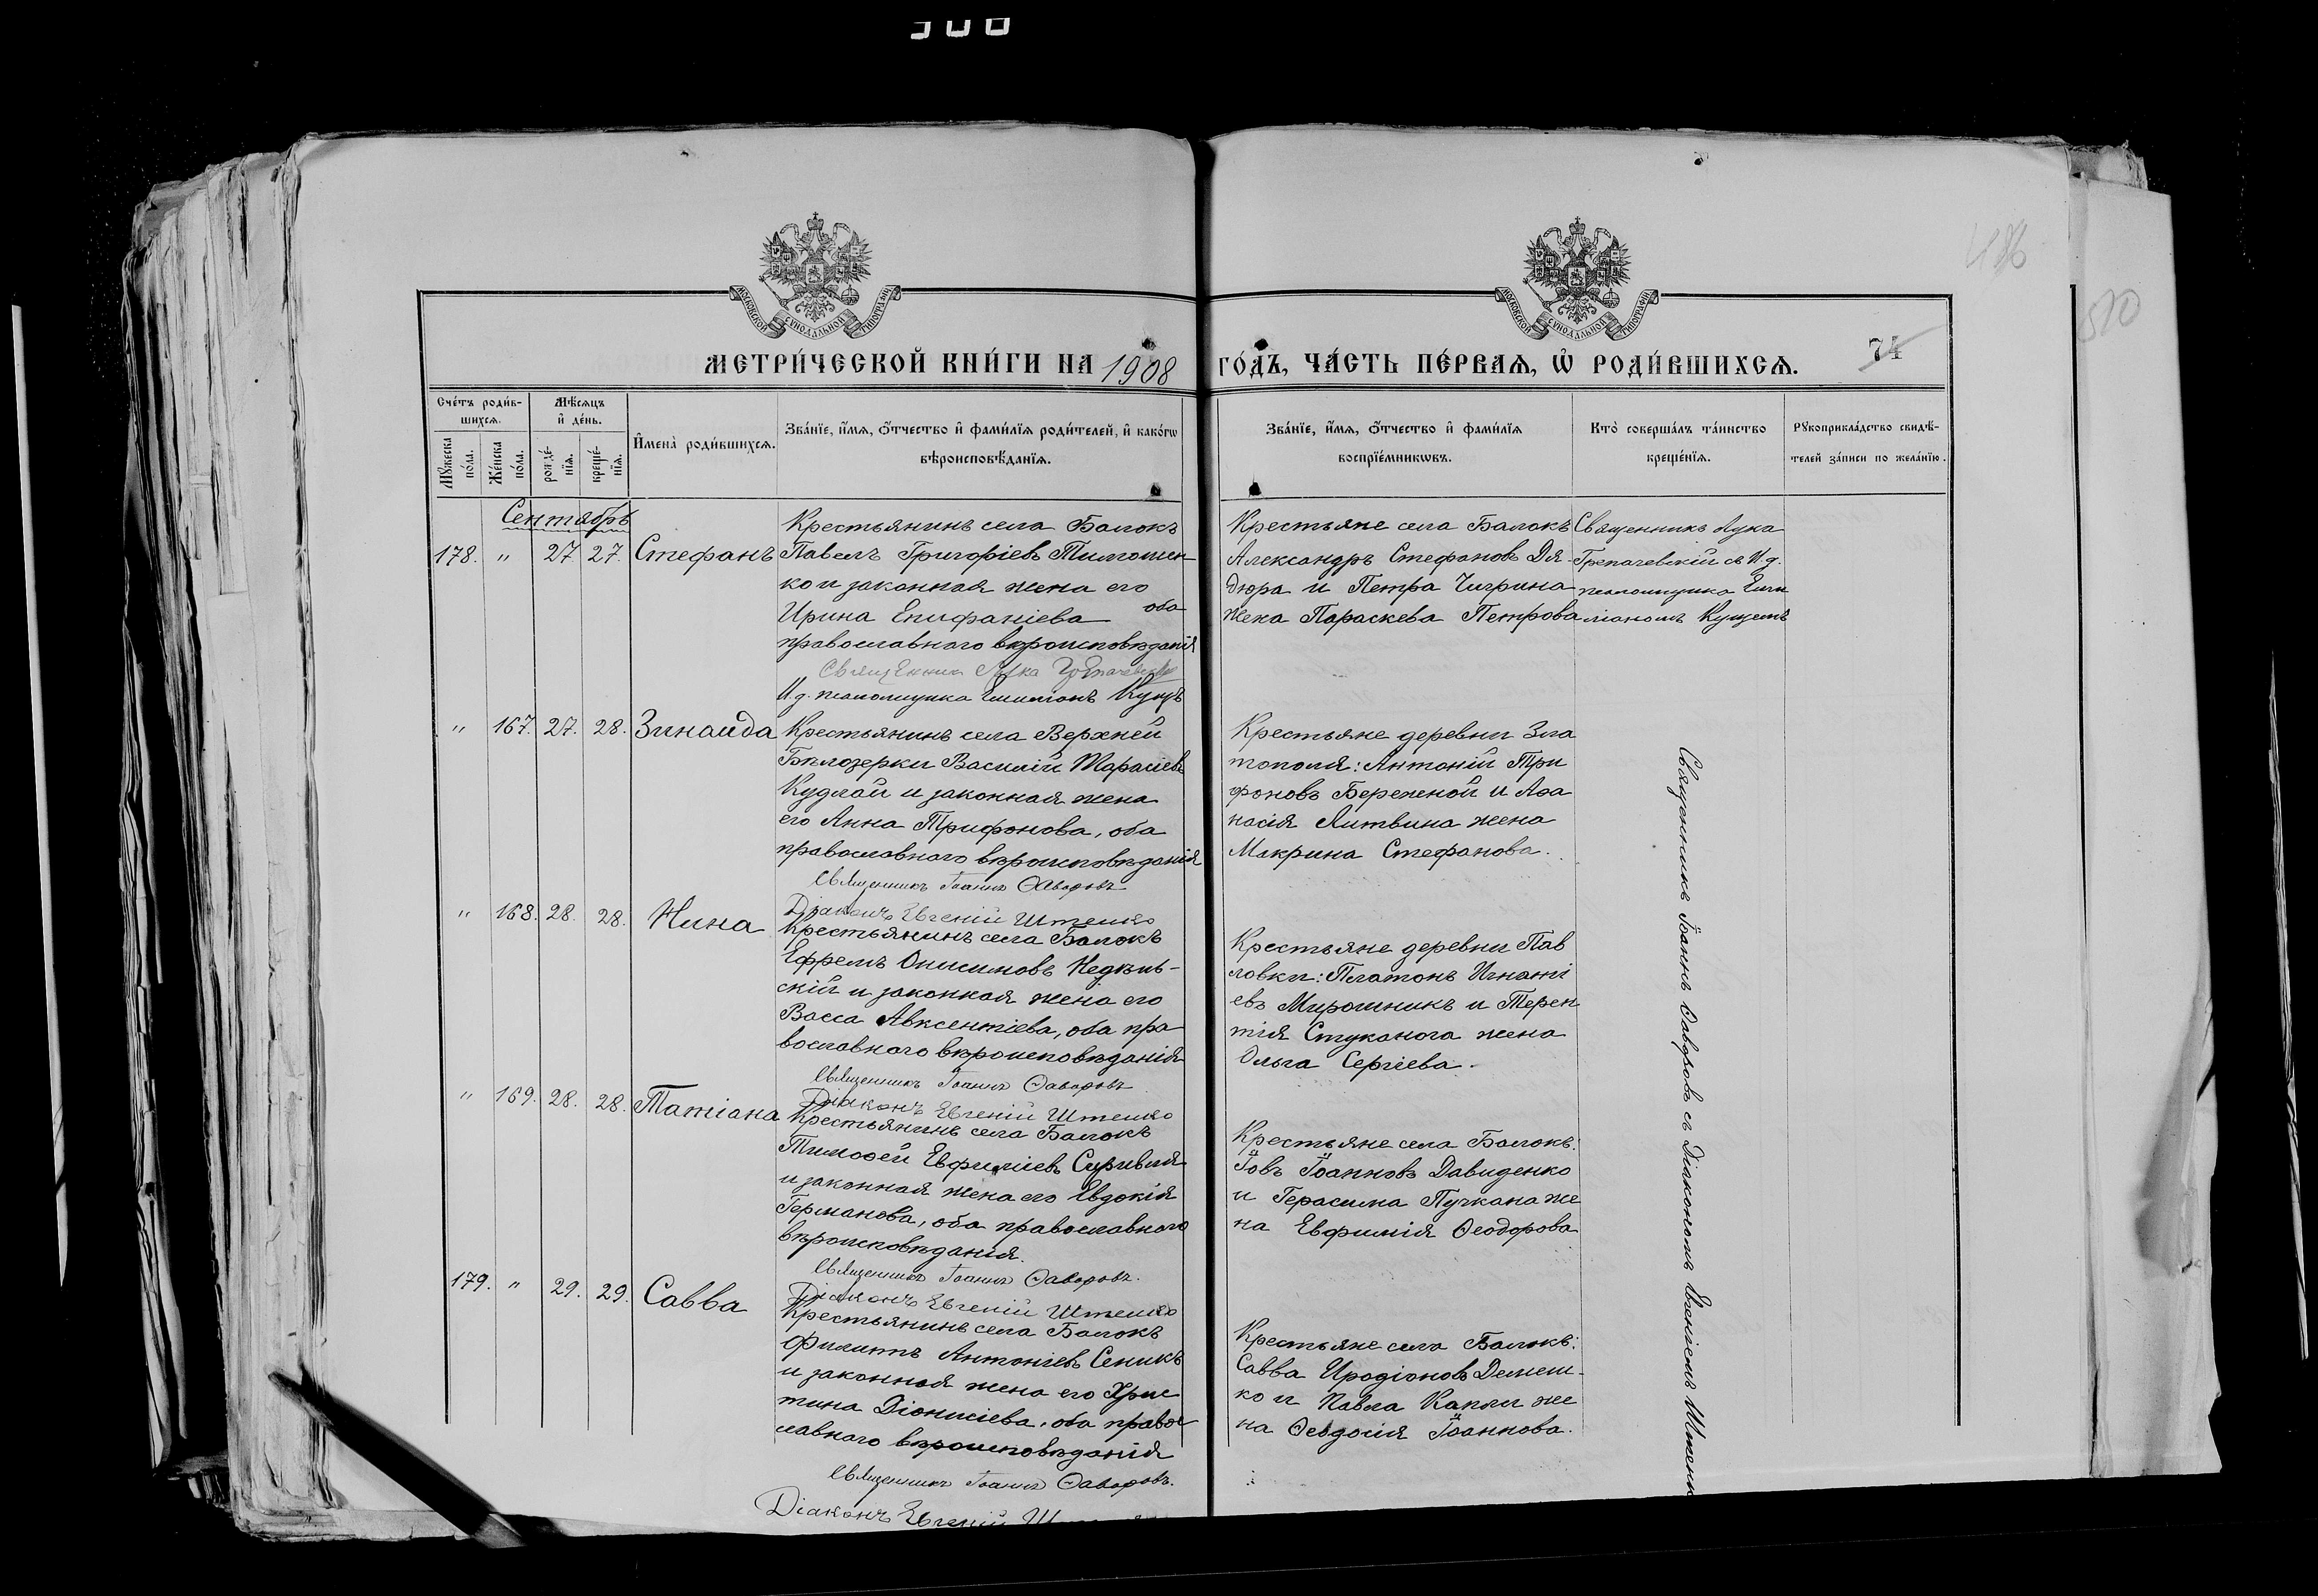 МЕТРИ́ЧЕСКОЙ КНИ́ГИ НА 1908 ГО́ДЪ, ЧА́СТЬ ПЕ́РВАЯ, Ѡ РОДИ́ВШИХСЯ.
74
486
510
МОСКОВСКОЙ СУНОДАЛЬНОЙ ТИПОГРАФІИ
МОСКОВСКОЙ СУНОДАЛЬНОЙ ТИПОГРАФІИ
Сче́тъ роди́в-
шихся.
Мꙋжеска по́ла.
Же́нска по́ла.
Мѣ́сяцъ
и҆ де́нь.
рожде́-
нїя.
креще́-
нїя.
И҆мена̀ роди́вшихся.
Зва́нїе, и҆́мя, ѻ҆́тчество и҆ фами́лїя роди́телей, и҆ како́гѡ
вѣроисповѣ́данїя.
Зва́нїе, и҆́мя, ѻ҆́тчество и҆ фами́лїя
воспрїе́мникѡвъ.
Кто̀ соверша́лъ та́инство
креще́нїя.
Рꙋкоприкла́дство свидѣ́-
телей за́писи по жела́нїю.
Сентябрь
178. " 27. 27. Стефанъ
Крестьянинъ села Балокъ
Павелъ Григоріевъ Тимошен-
ко и законная жена его
Ирина Епифаніева оба
православнаго вѣроисповѣданія
Священникъ Лука
И.д. псаломщика Емиліанъ Кущъ
Крестьяне села Балокъ
Александръ Стефановъ Дя-
дюра и Петра Чигрина
жена Параскева Петрова
Священникъ Лука
Грепачевскій съ И.д.
псаломщика Еми
ліаномъ Кущемъ
" 167. 27. 28. Зинаида
Крестьянинъ села Верхней
Бѣлозерки Василій Тарасіевъ
Кудлай и законная жена
его Анна Трифонова, оба
православнаго вѣроисповѣданія
Священникъ Іоаннъ Ѳаворовъ
Діаконъ Евгеній Штенко
Крестьяне деревни Зла
тополя: Антоній Три
фоновъ Береженой и Аѳа
насія Литвина жена
Макрина Стефанова.
" 168. 28. 28. Нина
Крестьянинъ села Балокъ
Ефремъ Онисимовъ Недѣль-
скій и законная жена его
Васса Авксентіева, оба пра
вославнаго вѣроисповѣданія
Священникъ Іоаннъ Ѳаворовъ
Діаконъ Евгеній Штенко
Крестьяне деревни Пав
ловки: Платонъ Игнаті
евъ Мирошникъ и Терен
тія Стуканога жена
Ольга Сергіева.
" 169. 28. 28. Татіана
Крестьянинъ села Балокъ
Тимоѳей Евфиміевъ
и законная жена его Евдокія
Германова, оба православнаго
вѣроисповѣданія.
Священникъ Іоаннъ Ѳаворовъ.
Діаконъ Евгеній Штенко
Крестьяне села Балокъ:
Іовъ Іоанновъ Давиденко
и Герасима Пучкана же
на Евфимія Ѳеодорова
179. " 29. 29. Савва
Крестьянинъ села Балокъ
Филиппъ Антоніевъ Сеникъ
и законная жена его Хрис
тина Діонисіева, оба правос
лавнаго вѣроисповѣданія
Священникъ Іоаннъ Ѳаворовъ.
Діаконъ Евгеній
Крестьяне села Балокъ:
Савва Иродіоновъ Демеш-
ко и Павла Каппи же
на Ѳеодосія Іоаннова.
Священникъ Іоаннъ Ѳаворовъ съ Діакономъ Евгеніемъ Штенко